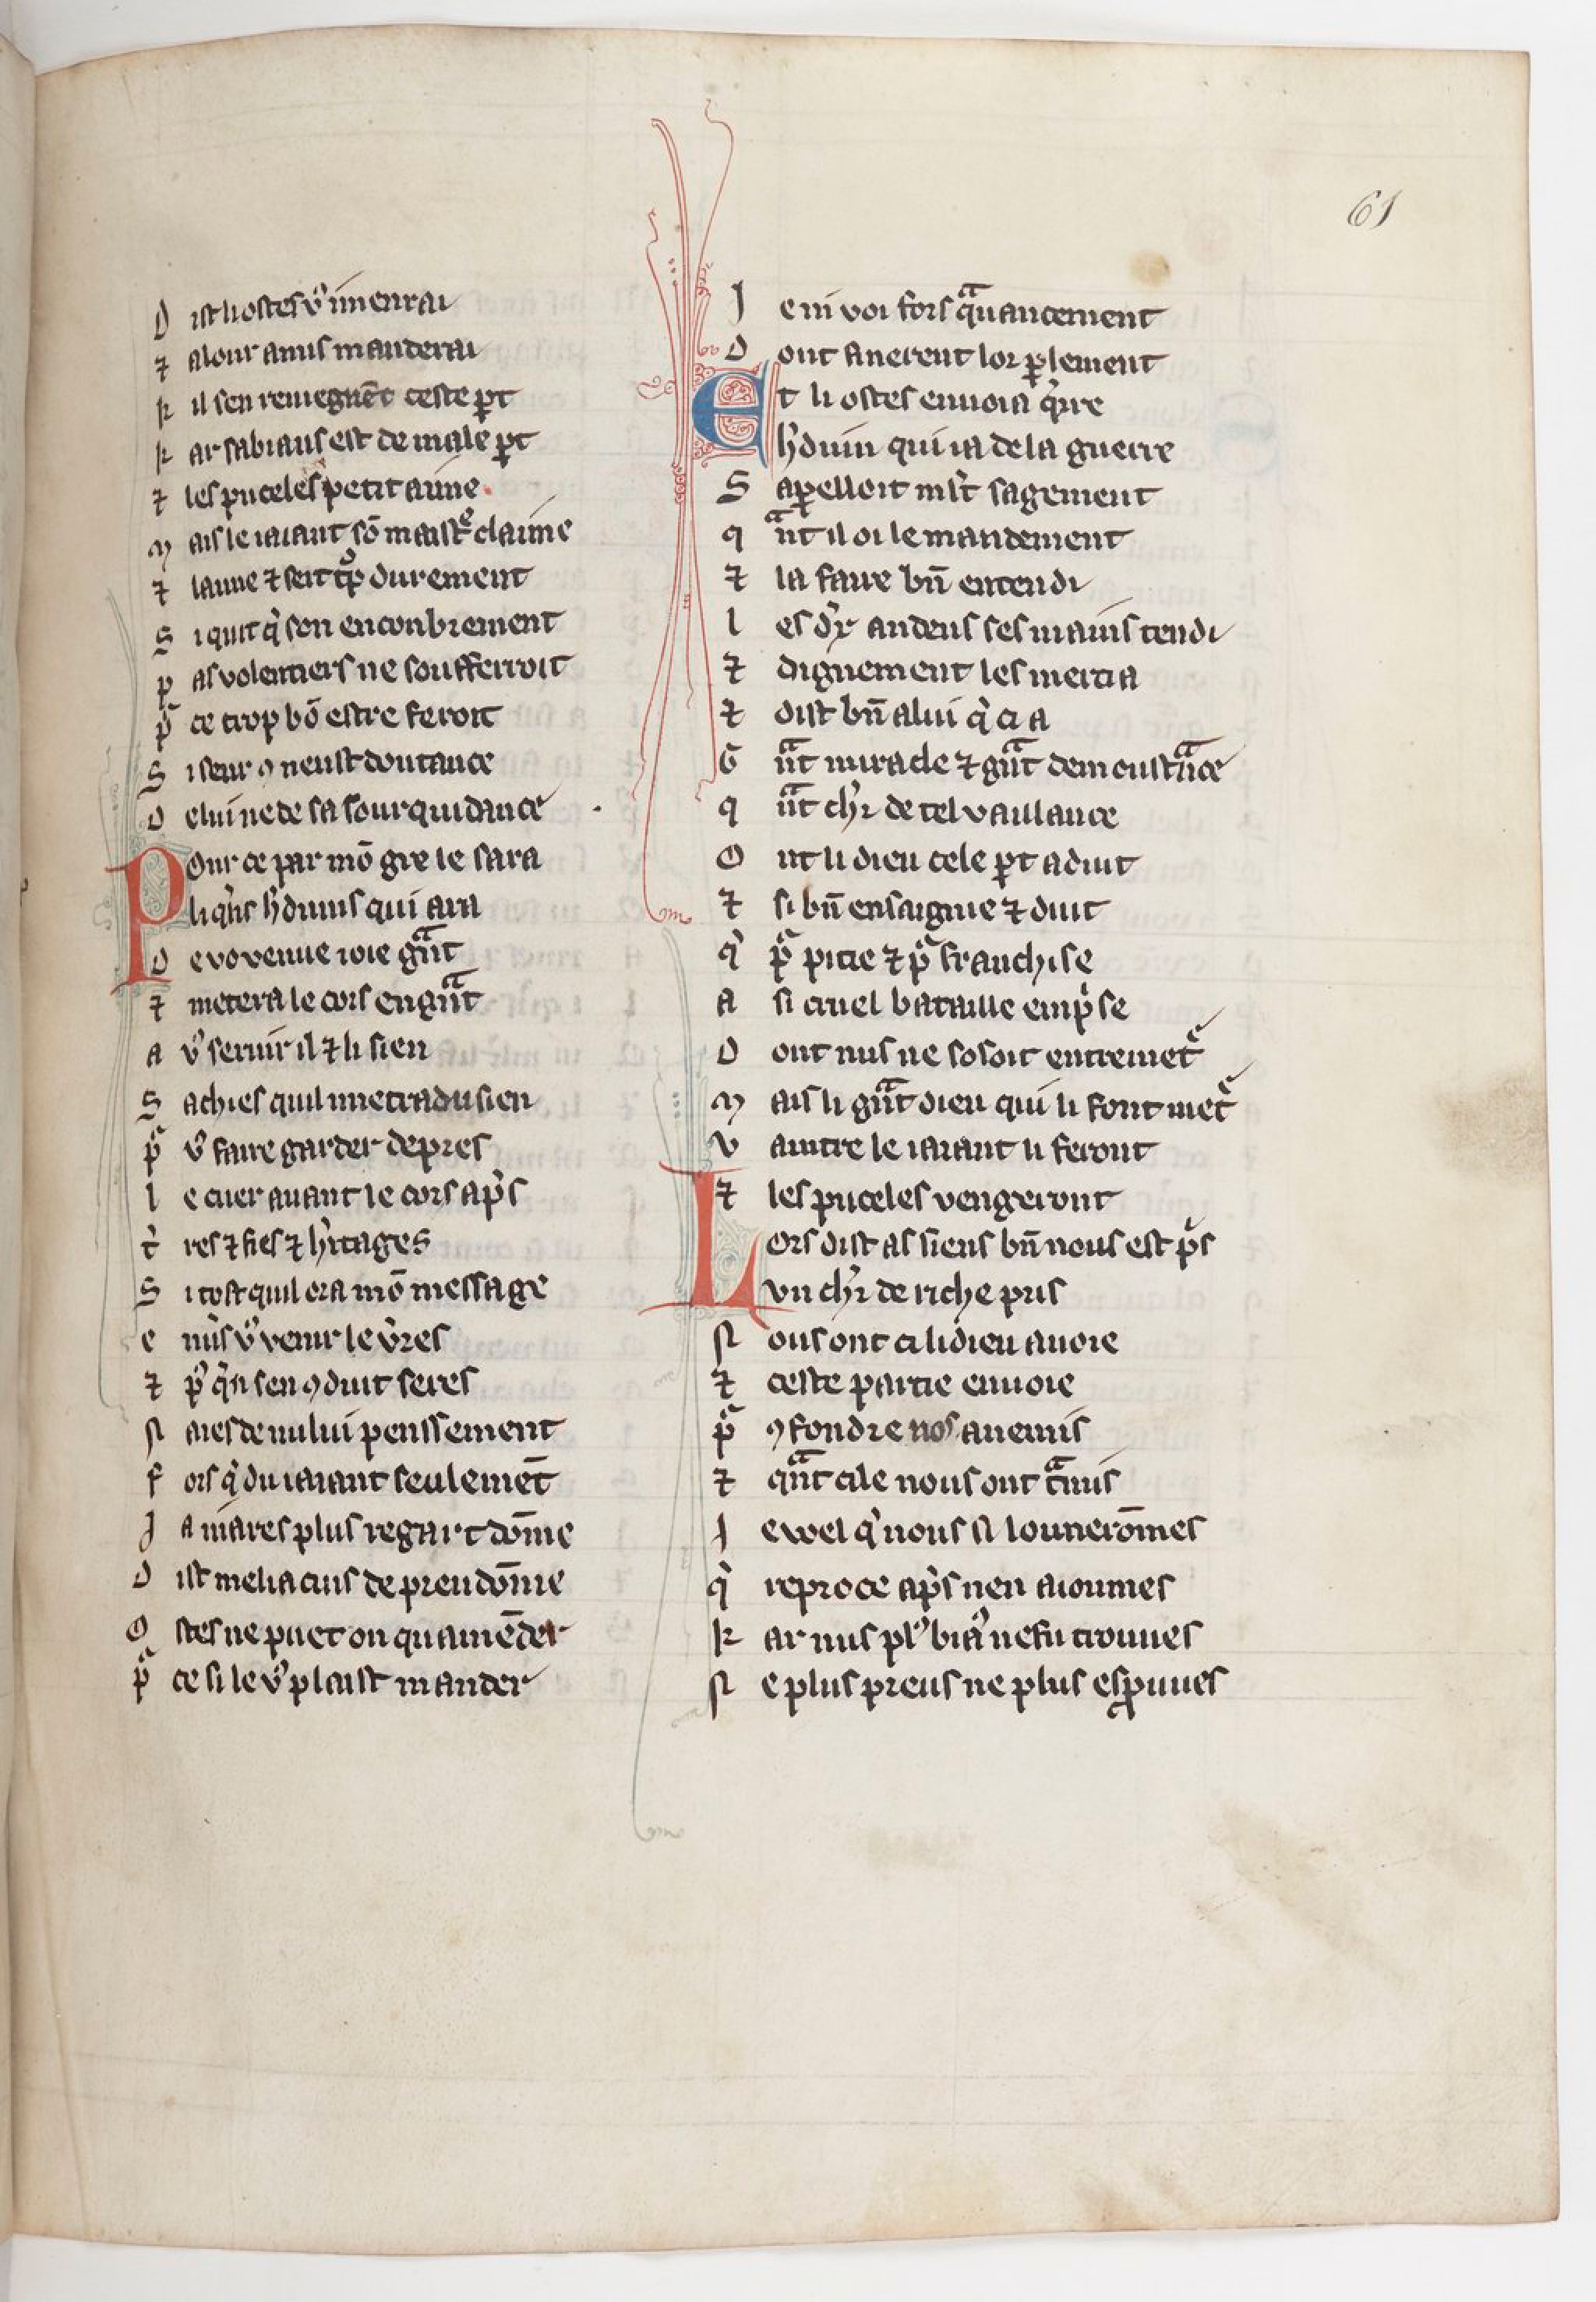 61
D ist li ostes vͦ i menrai
⁊ a lour amis manderai
k il sen reviegnēt ceste ꝑt
k ar fabiaus est de male ꝑt
⁊ les puceles petit aime
M ais le iaiant sō maistͤ claime
⁊ laime ⁊ sert tͦp durement
S i quit qͥ son enconbrement
p as volentiers ne soufferroit
pͦ ce trop bō estre feroit
S i seur ꝯ neust doutance
D e lui ne de sa sourquidance
Pour ce par mō gre le sara
li qͥns hͥduins qui ara
D e vo venue ioie gͣnt
⁊ metera le cors en gͣnt
a vͦ servir il ⁊ li sien
S achies quil metra du sien
pͦ vͦ faire garder de pres
l e cuer avant le cors apͥs
tͥ res ⁊ fies ⁊ hͥitages
S i tost quil ora mō message
e nuͥs vͦ venir le vͥres
⁊ pͦ qͥ n sen ꝯduit seres
N aies de nului penssement
f ors qͥ du iaiant seulemēt
J a mares plus regart dōme
D ist meliacins de preudōme
O stes ne puet on quamēder
pͦ ce si le vͦ plaist mander
J e ni voi fors qͣ nancement
D ont finerent lor ꝑlement
Et li ostes envoia qͥrre
hͥduin qui ia de la guerre
S aꝑelloit mlt̄ sagement
q ͣnt il oi le mandement
⁊ la faire bn̄ entendi
l es dͥx andeus ses mains tendi
⁊ dignement les mercia
⁊ dist bn̄ a lui qͥ ci a
G ͣnt miracle ⁊ gͣnt demoustͣnce
q ͣnt chͬr de tel vaillance
O nt li dieu cele ꝑt aduit
⁊ si bn̄ ensaignie ⁊ duit
qͥ pͦ pitie ⁊ pͦ franchise
A si cruel bataille empͥse
D ont nus ne sosoit entremetͤ
M ais li gͣnt dieu qui li font metͤ
V aintre le iaiant li feront
⁊ les puceles vengeront
Lors dist as siens bn̄ nous est pͥs
vn chͬr de riche pris
N ous ont ci li dieu avoie
⁊ ceste partie envoie
pͦ ꝯfondre nos anemis
⁊ qͣnt cile nous ont tͣmis
J e voel qͥ nous si lounerōmes
qͥ reproce apͥs nen aioumes
k ar nus plͦ biaͦ ne fu trouves
N e plus preus ne plus esprouves